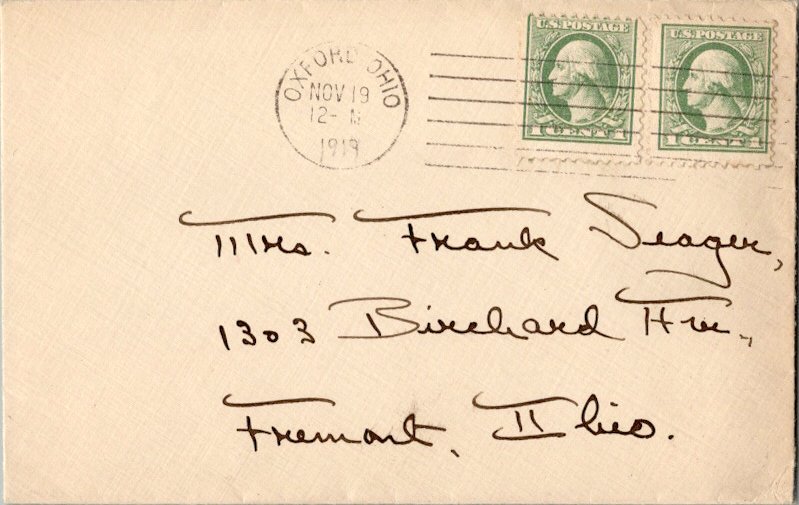 OXFORD OHIO
NOV 19
12- M
1919
U.S. POSTAGE
1 CENT 1
U.S. POSTAGE
1 CENT 1
Mrs. Frank Seager,
1303 Birchard Ave.,
Fremont, Ohio.